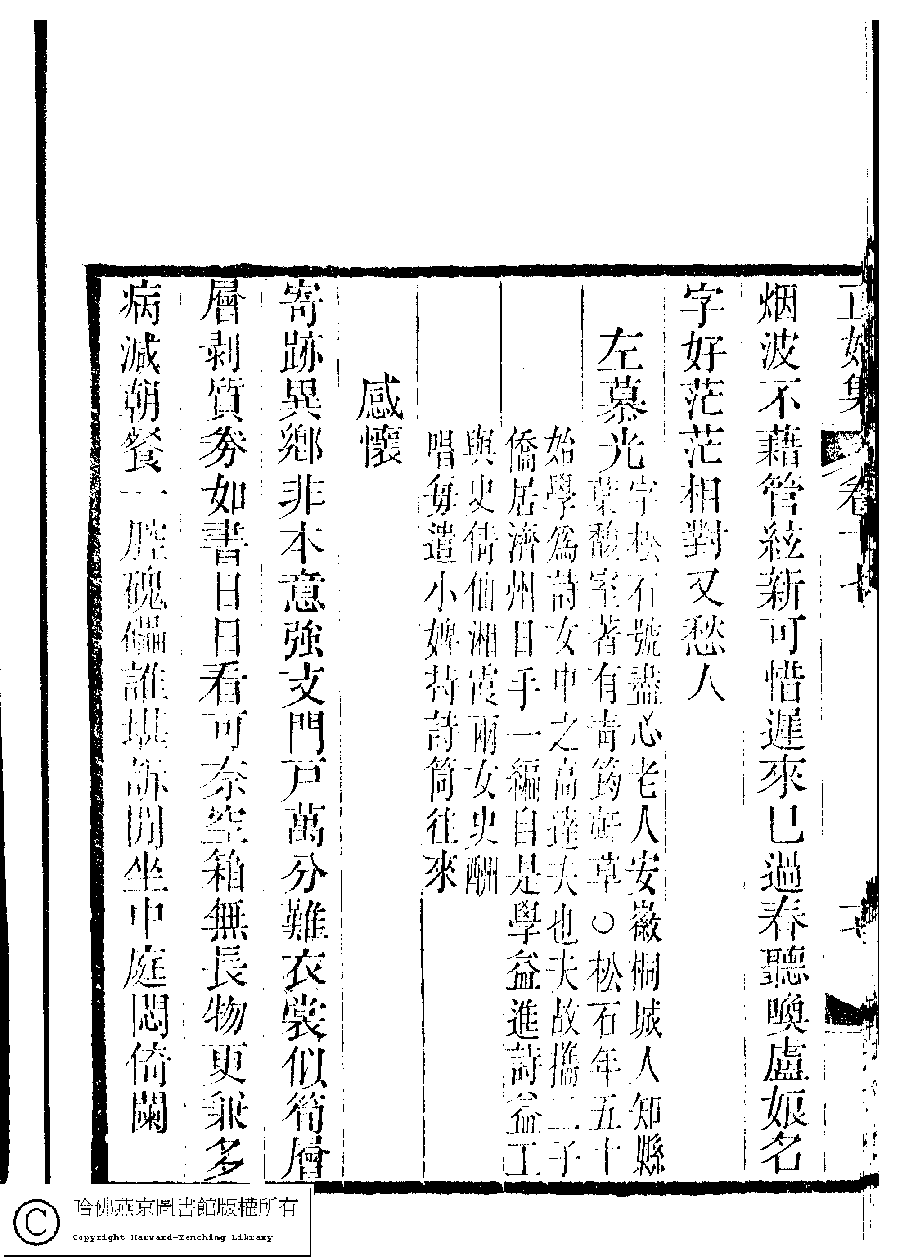 正始集 卷十
烟波不藉管絃新可惜遲來已過春聽喚盧娘名
字好茫茫相對又愁人
左慕光字松石號盡心老人安徽桐城人知縣
葉馥室著有靑筠軒草○松石年五十
始學爲詩女中之高達夫也夫故攜二子
僑居濟州日手一編自是學益進詩益工
與史倩仙湘霞兩女史酬
唱每遣小婢持詩筒往來
感懷
寄跡異鄉非本意強支門戸萬分難衣裳似筍層
層剥質劵如書日日看可奈空箱無長物更兼多
病減朝餐一腔磈儡誰堪訴閒坐中庭悶倚闌
哈佛燕京圖書館版權所有
Copyright Harvard-Yenching Library